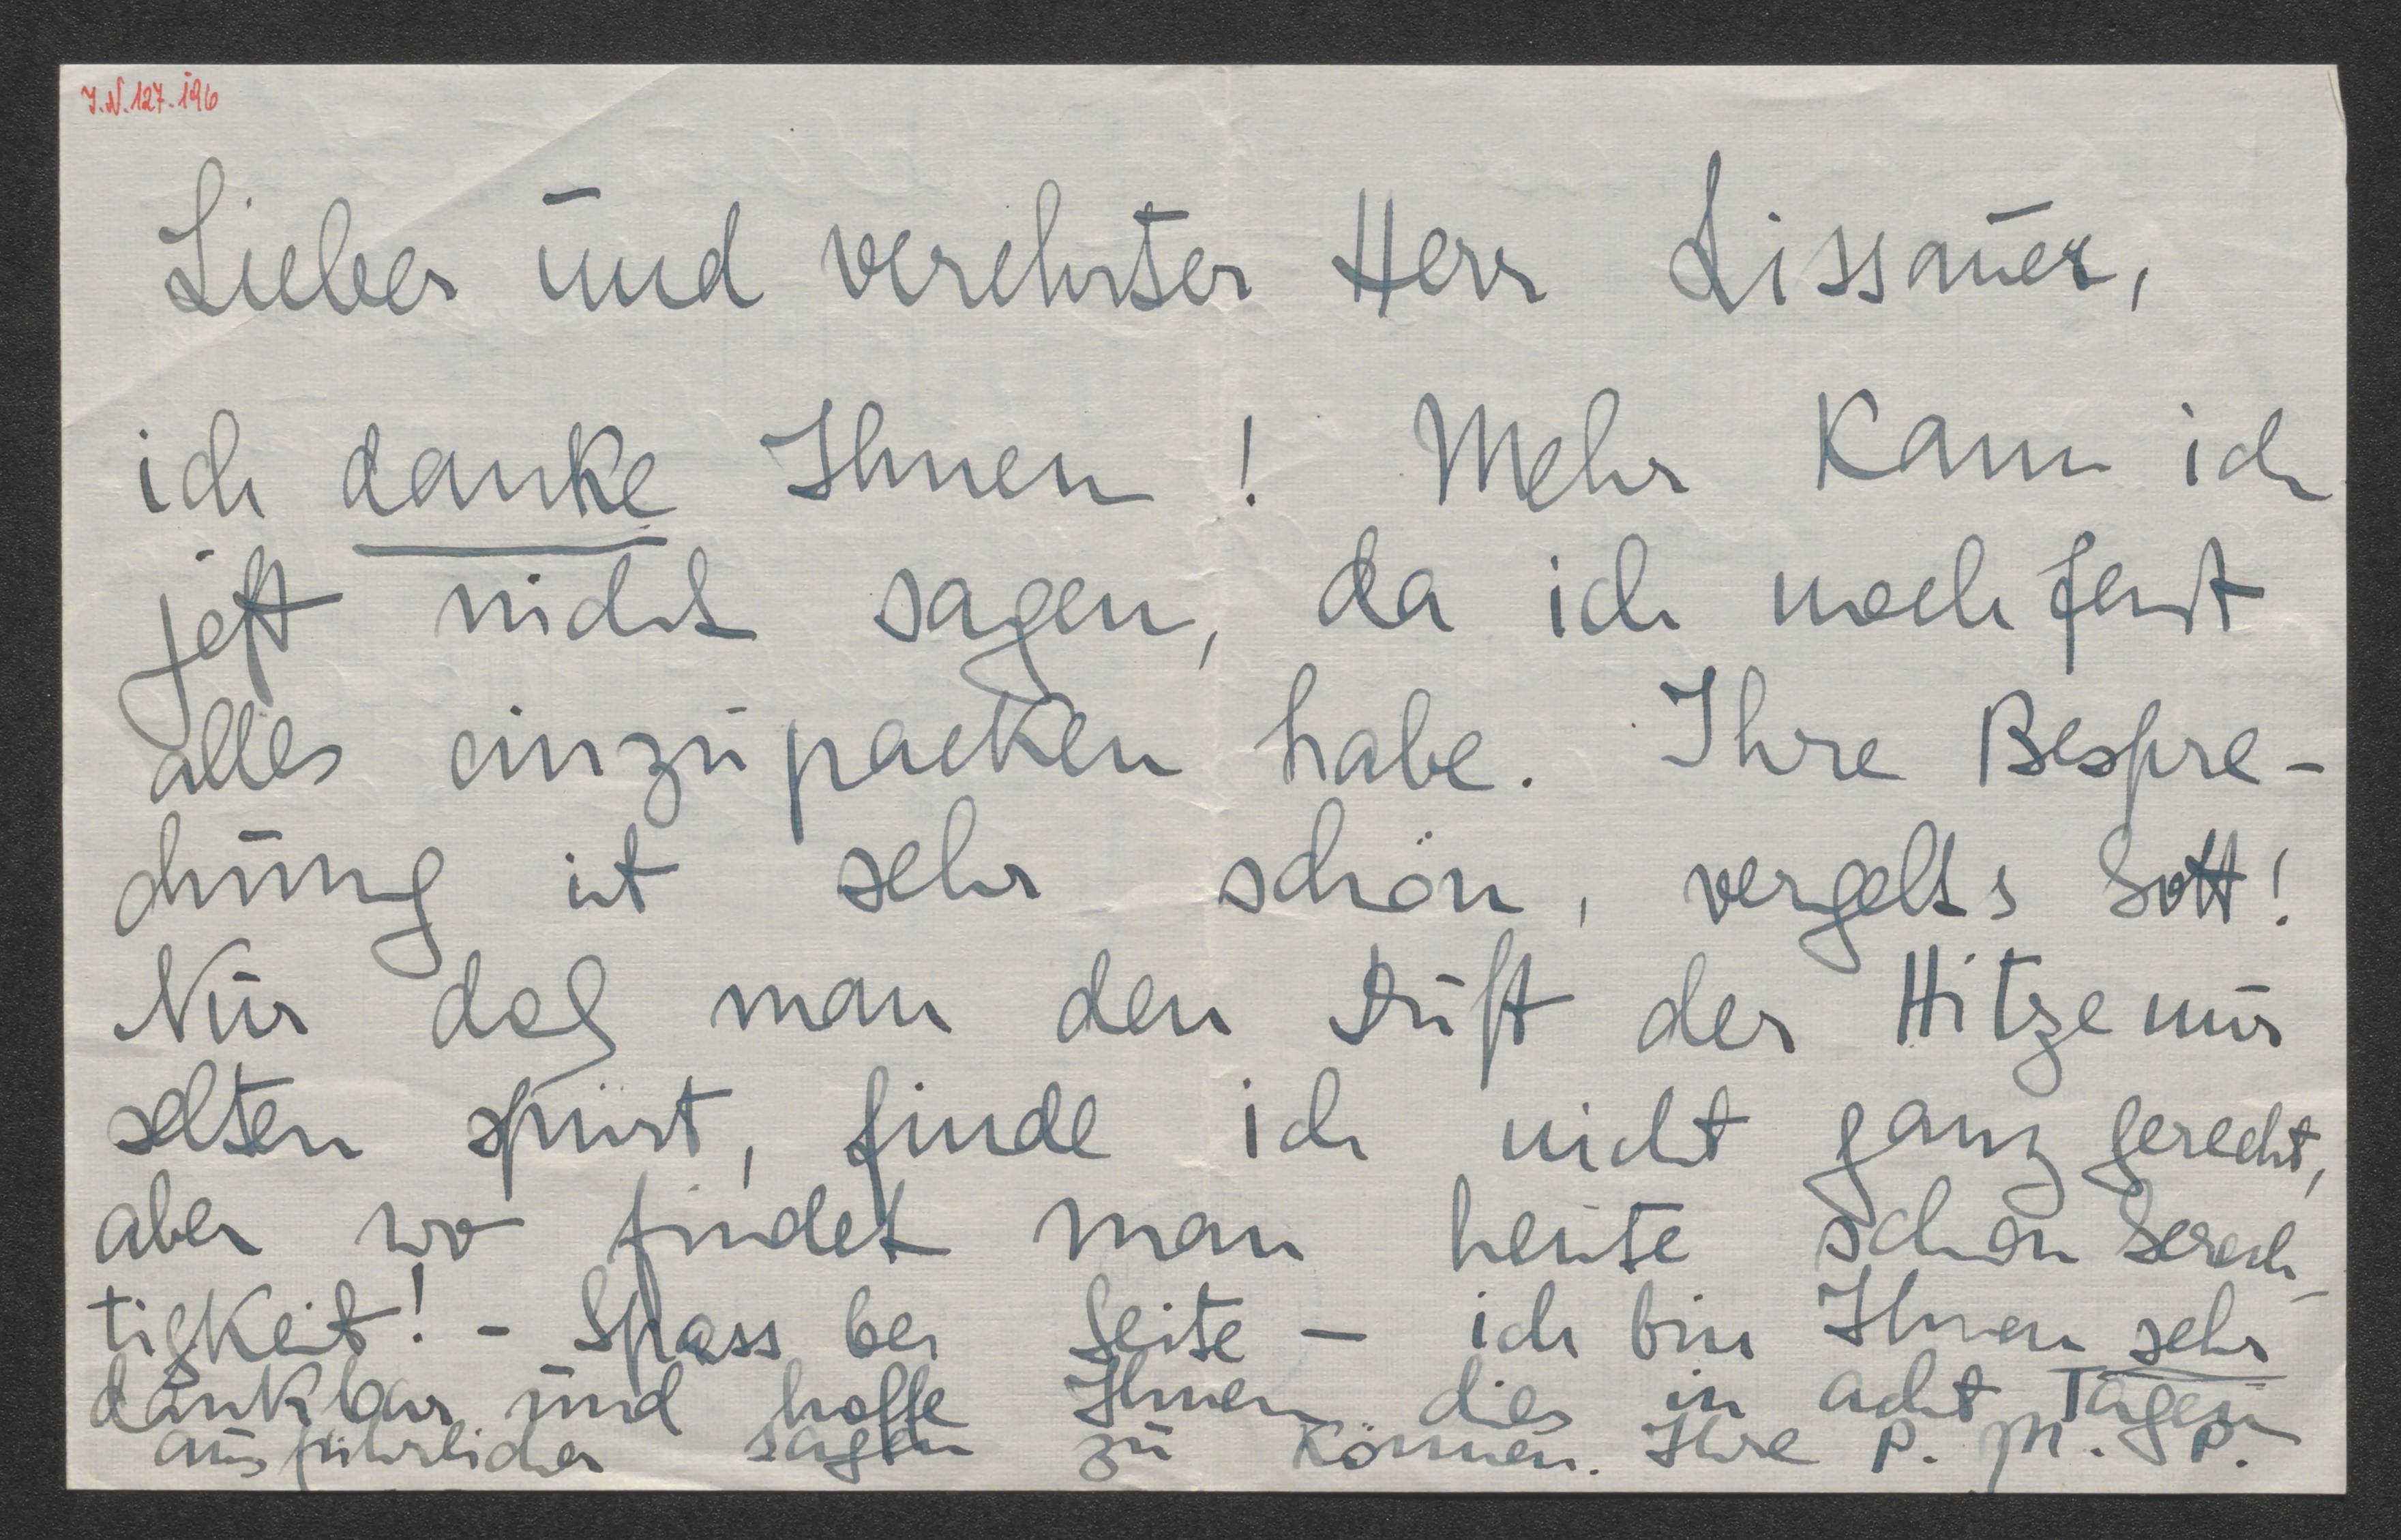 J.N. 127.196
Lieber und verehrter Herr Lissauer,
ich danke Ihnen! Mehr kann ich
jetzt nicht sagen, da ich noch fast
alles einzupacken habe. Ihre Bespre-
chung ist sehr schön, vergelts Gott!
Nur daß man den Duft der Hitze nur
selten spürt, finde ich nicht ganz gerecht,
aber wo findet man heute schon Gerech-
tigkeit! - Spass bei Seite - ich bin Ihnen sehr
dankbar und hoffe Ihnen dies in acht Tagen
ausführlicher sagen zu können. Ihre P. M. P.